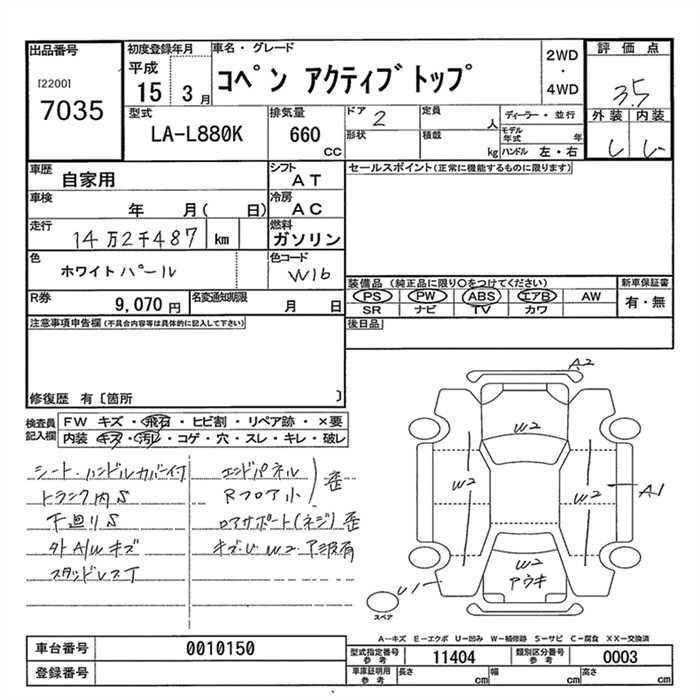 出品番号
[2200]
7035
初度登録年月
平成
15 3月
車名・グレード
コペン アクティブトップ
2WD
・
4WD
評価点
3.5
外装 内装
型式
LA-L880K
排気量
660
cc
ドア 2
形状
定員
人
積載
kg
ディーラー・並行
モデル年式 年
ハンドル 左・右
車歴
自家用
シフト
AT
セールスポイント(正常に機能するものに限ります)
車検
年 月( 日)
冷房
AC
走行
14万2千487 km
燃料
ガソリン
色
ホワイトパール
色コード
W16
R券
9,070円
名変通知期限
月 日
装備品(純正品に限り○をつけてください)
PS PW ABS エアB AW
SR ナビ TV カワ
新車保証書
有・無
後日品
注意事項申告欄(不具合内容等は具体的に記入して下さい)
修復歴 有〔箇所 〕
検査員記入欄
FW キズ・飛石・ヒビ割・リペア跡・×要
内装 キズ・汚レ・コゲ・穴・スレ・キレ・破レ
シート・ハンドルカバー付
トランク内S
下廻りS
外A/Wキズ
スタッドレスT
エンドパネル
Rフロア小
歪
ロアサポート(ネジ)歪
キズ・U W2
A2
W2
W2
W2
A1
W2
アウキ
U1
スペア
A--キズ E-エクボ U-凹み W-補修跡 S-サビ C-腐食 XX-交換済
車台番号
0010150
登録番号
型式指定番号
参考
11404
類別区分番号
参考
0003
車庫証明用
参考
長さ cm
幅 cm
高さ cm